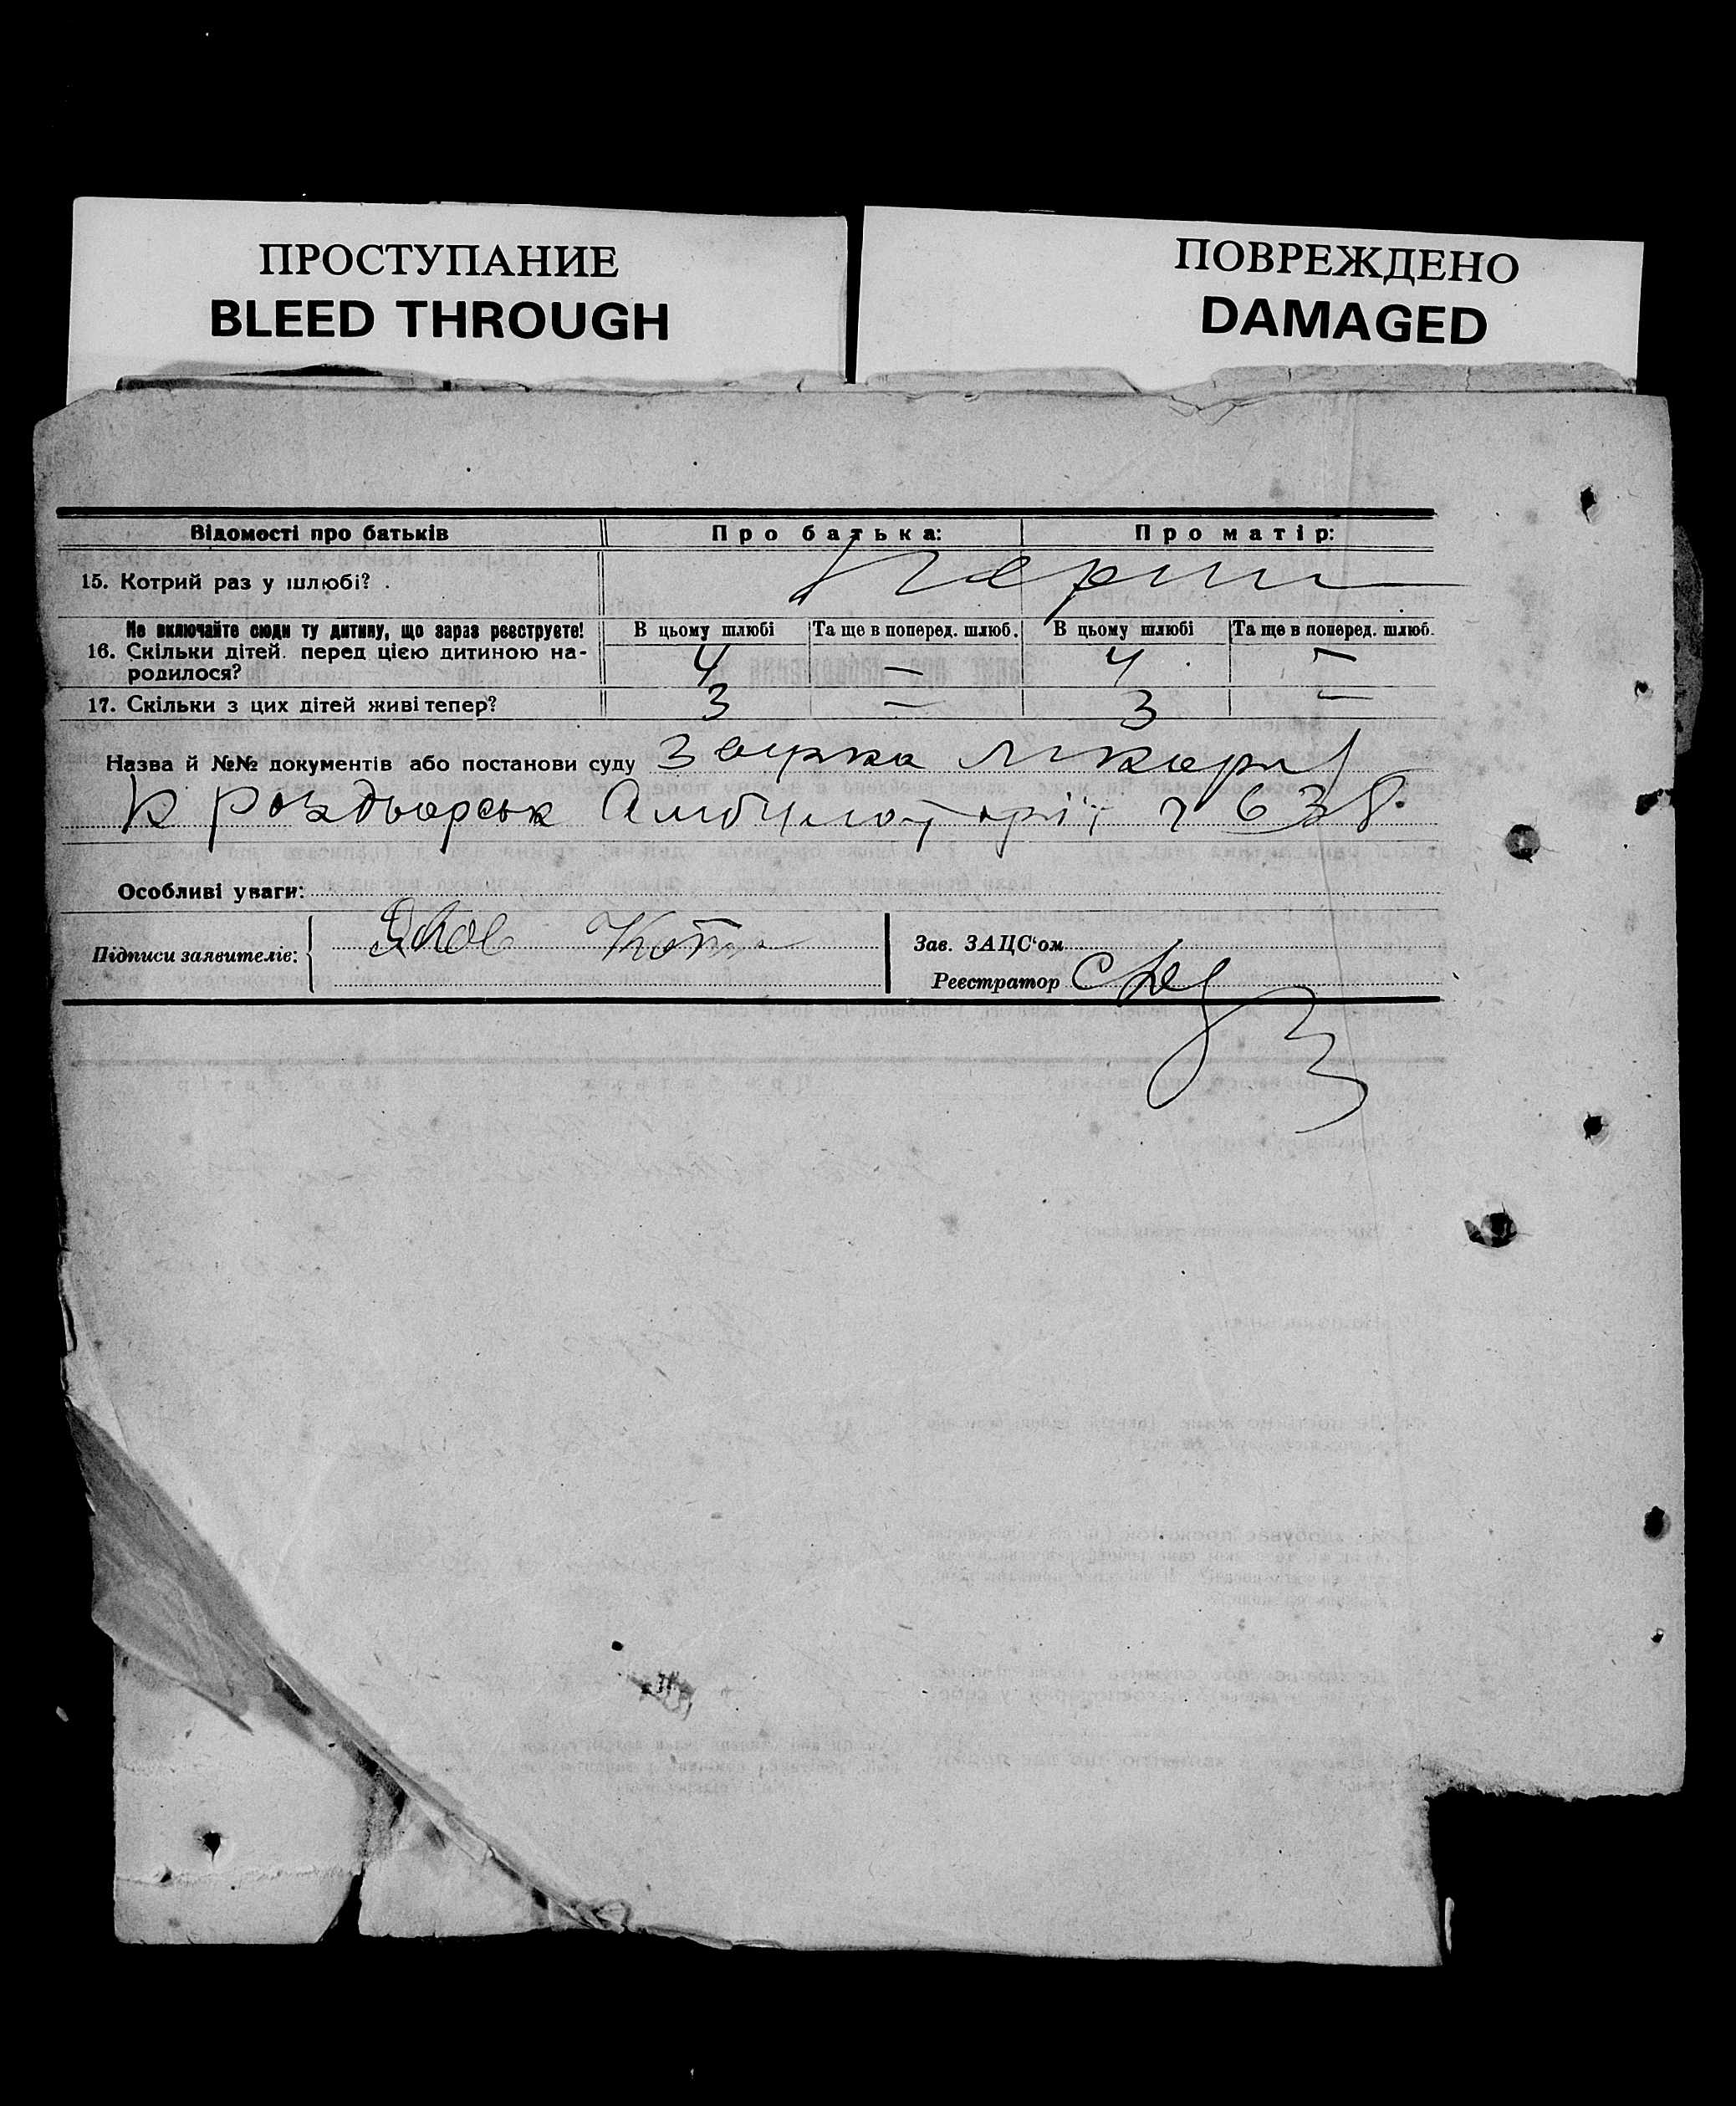 ПРОСТУПАНИЕ
BLEED THROUGH
ПОВРЕЖДЕНО
DAMAGED
Відомості про батьків Про батька: Про матір:
15. Котрий раз у шлюбі?
Не включайте сюди ту дитину, що зараз реєструєте! В цьому шлюбі Та ще в поперед. шлюб. В цьому шлюбі Та ще в поперед. шлюб.
16. Скільки дітей перед цією дитиною на-
родилося? 4 — 4 —
17. Скільки з цих дітей живі тепер? 3 — 3 —
Назва й №№ документів або постанови суду
Амбулоторії 638
Особливі уваги:
Підписи заявителів: Яков
Зав. ЗАЦС'ом
Реєстратор